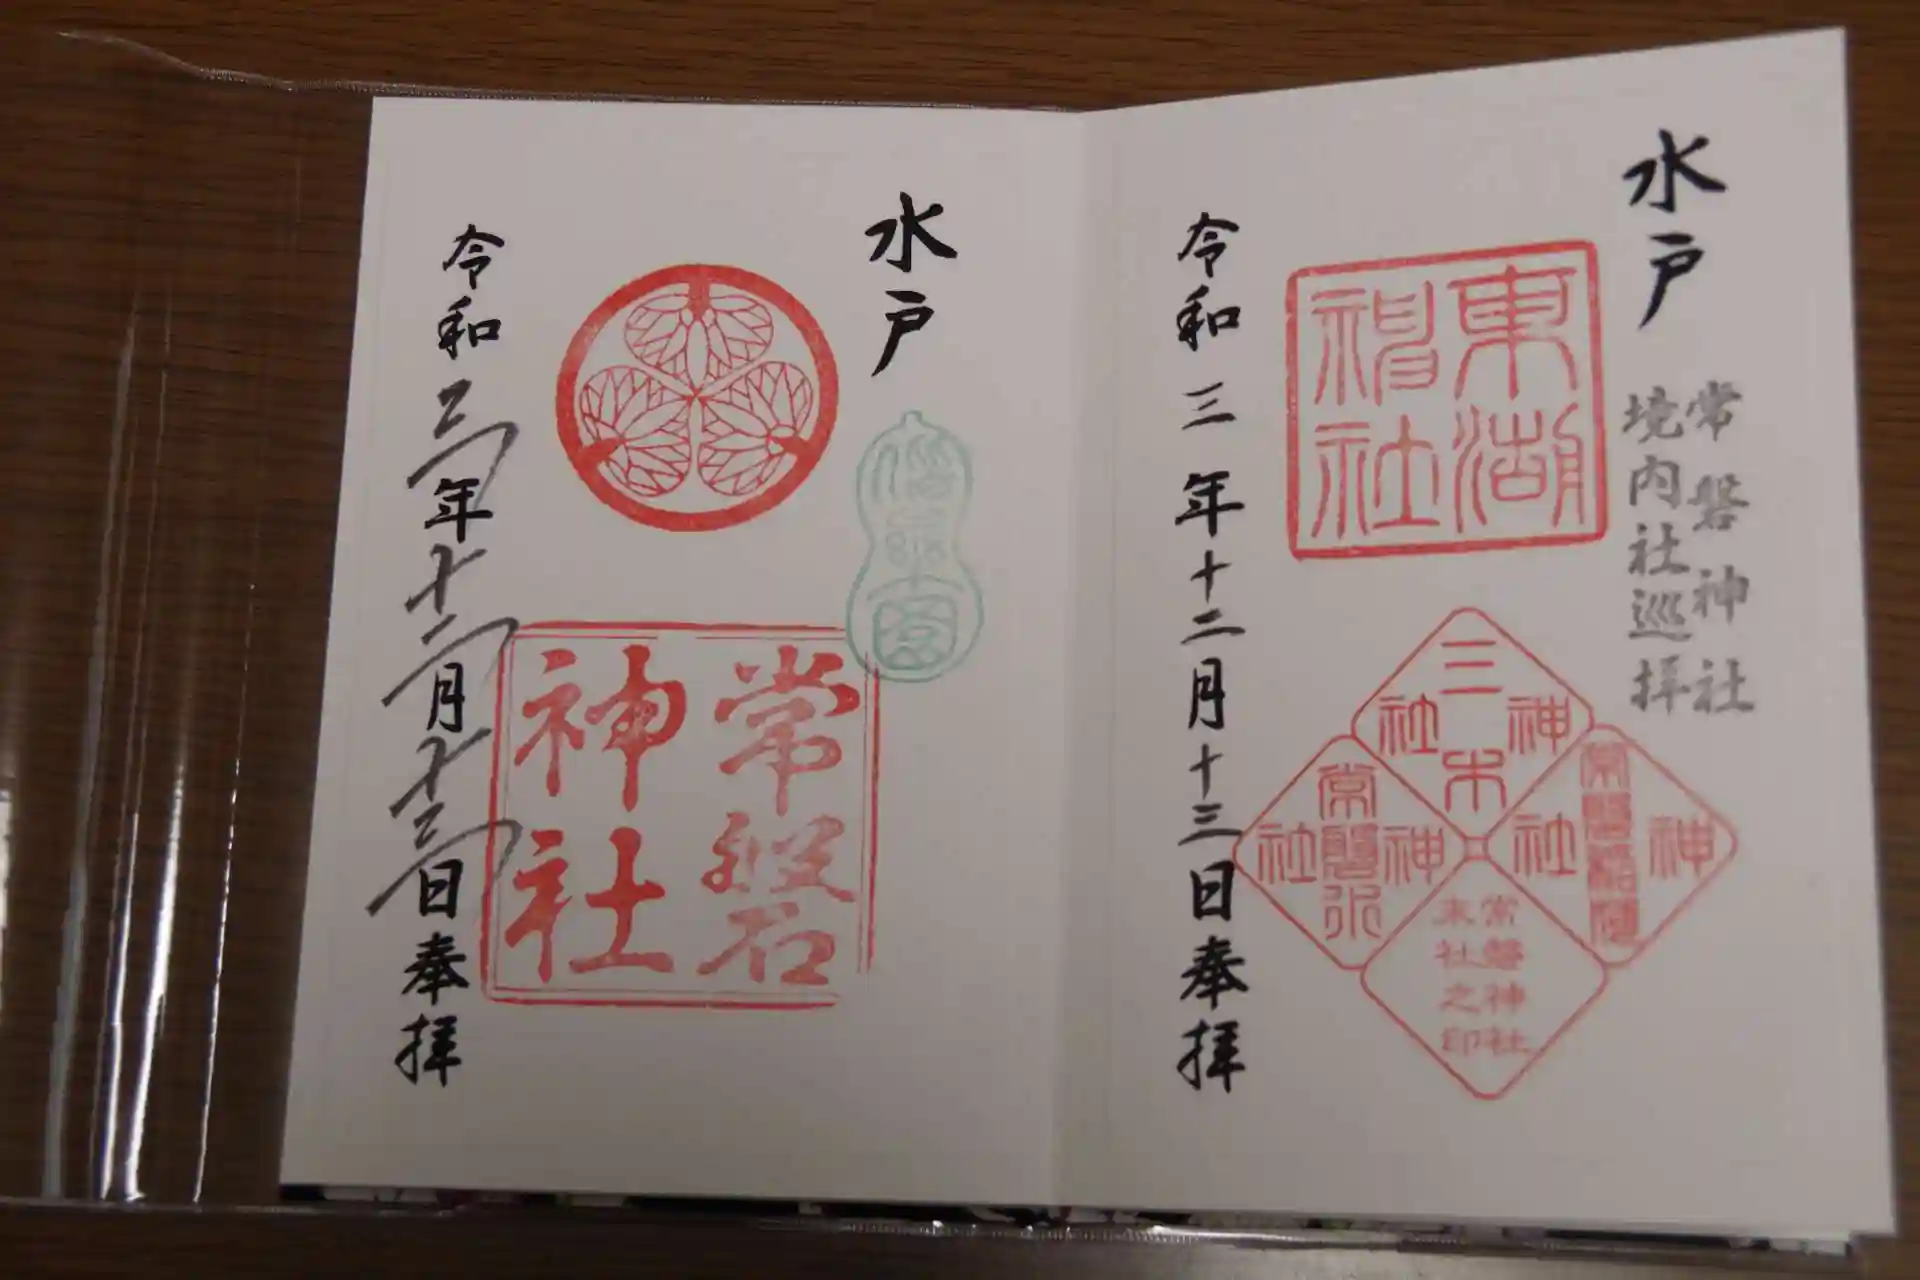 水戸
常磐神社
境内社巡拝
東湖
神社
三木
神
社
常磐稲荷
神
社
常磐
神
社
常磐神社
末社之印
令和三年十二月十三日奉拝
水戸
偕楽園
常磐
神社
令和三年十二月十三日奉拝